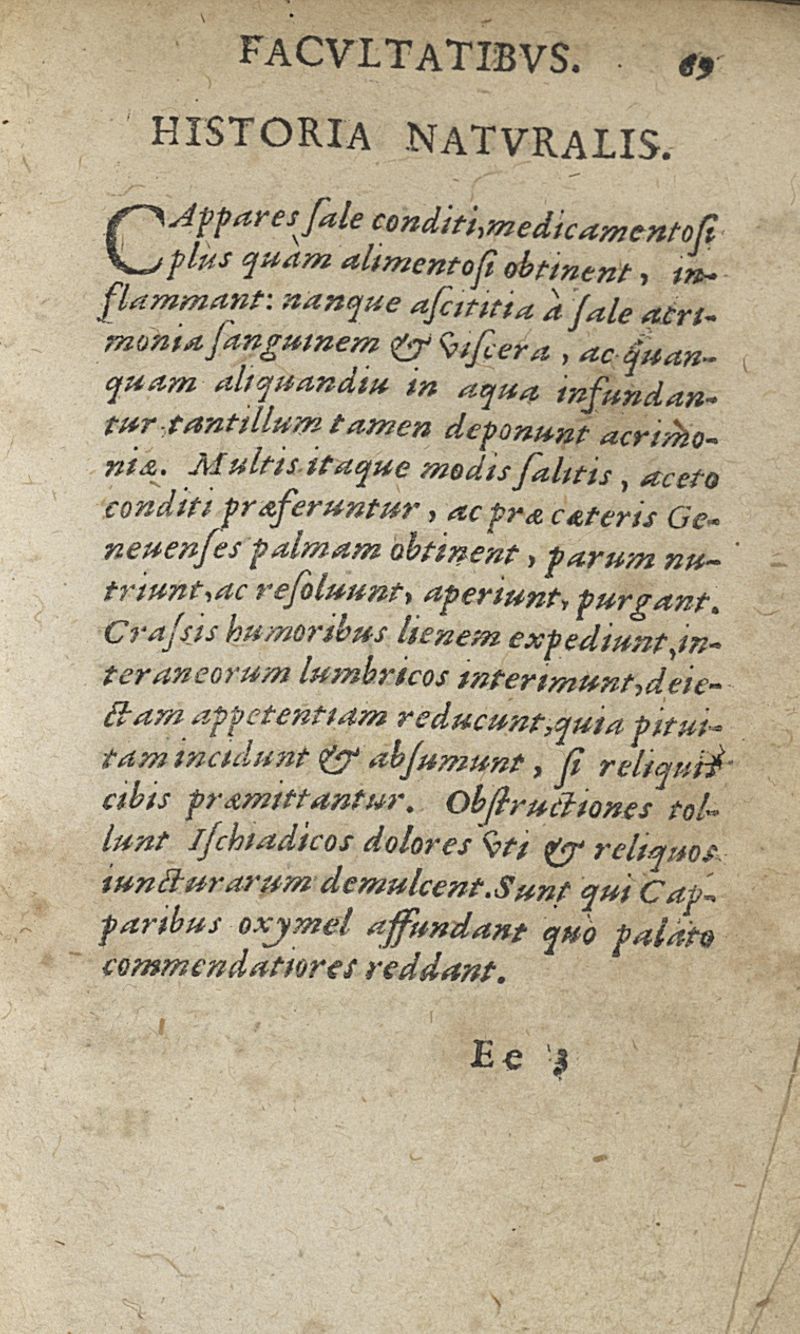 FACVLTATIBVS. 69
HISTORIA NATVRALIS.
CAppares ſale conditi, medicamentoſi
plus quàm alimentoſi obtinent, in-
flammant: nanque aſcititia à ſale acri-
monia ſanguinem & viſcera, ac quan-
quam aliquandiu in aqua infundan-
tur tantillum tamen deponunt acrimo-
niæ. Multis itaque modis ſalitis, aceto
conditi præferuntur, ac præ cæteris Ge-
neuenſes palmam obtinent, parum nu-
triunt, ac reſoluunt, aperiunt, purgant.
Craſsis humoribus lienem expediunt, in-
teraneorum lumbricos interimunt, deie-
ctam appetentiam reducunt, quia pitui-
tam incidunt & abſumunt, ſi reliquis
cibis præmittantur. Obſtructiones tol-
lunt Iſchiadicos dolores vti & reliquos
iuncturarum demulcent. Sunt qui Cap-
paribus oxymel affundant quò palato
commendatiores reddant.
Ee 3